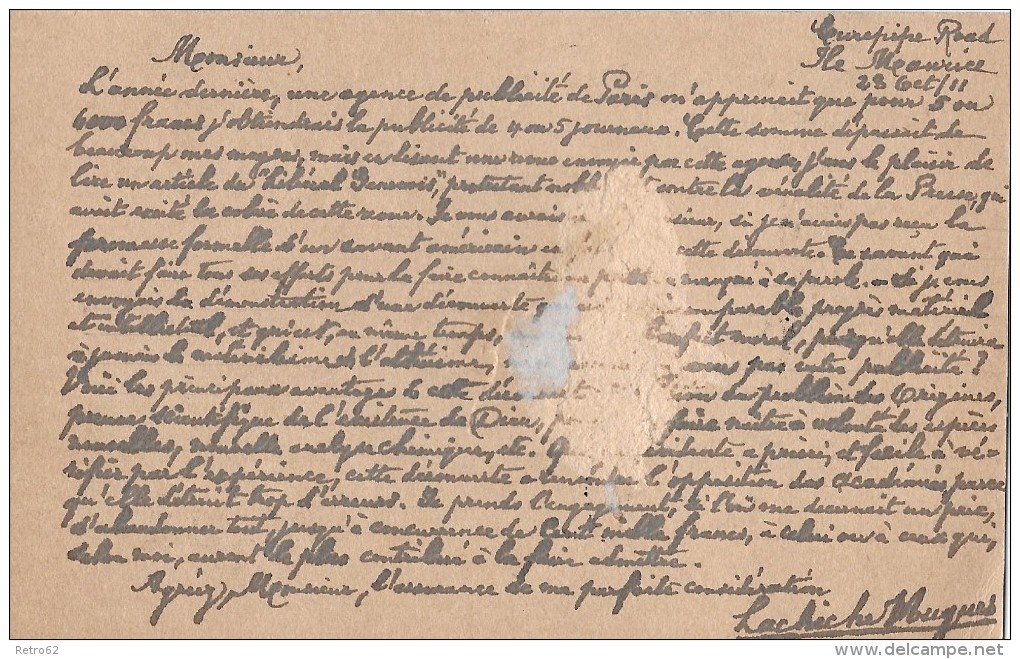 Curepipe Road
Ile Maurice
23 Oct/11
Monsieur,
L'année dernière, une agence de publicité de Paris m'apprenait que pour 5 ou
6000 francs j'obtiendrais la publicité de 4 ou 5 journaux. Cette somme dépassait de
beaucoup mes moyens, mais en lisant une revue envoyée par cette agence, j'eus le plaisir de
lire un article du "Libéral", protestant contre la vénalité de la Presse, qui
avait excité la colère de cette revue. Je vous aurais si je n'avais pas reçu la
promesse formelle d'un savant américain cette découverte. Ce savant qui
devait faire tous ses efforts pour la faire connaître a manqué à sa parole. - Si je vous
envoyais la démonstration d'une découverte progrès matériel
et intellectuel, et qui est, en même temps, moral, puisqu'elle détruira
à jamais le matérialisme et l'athéisme, vous pas votre publicité?
Voici les principaux avantages de cette découverte du problème des Origines,
preuve scientifique de l'existence de Dieu, faire naître à volonté des espèces
nouvelles, nouvelle analyse chimique, etc. a priori, et facile à vé-
rifier par l'expérience, cette découverte a rencontré l'opposition des académies parce
qu'elle détruit trop d'erreurs. Je prends l'engagement, si l'on me décernait un prix,
d'abandonner tout, jusqu'à concurrence de Cent mille francs, à celui ou à ceux qui,
selon moi, auront le plus contribué à la faire admettre.
Agréez, Monsieur, l'assurance de ma parfaite considération
Lachiche Hugues
Retro62
delcampe.net